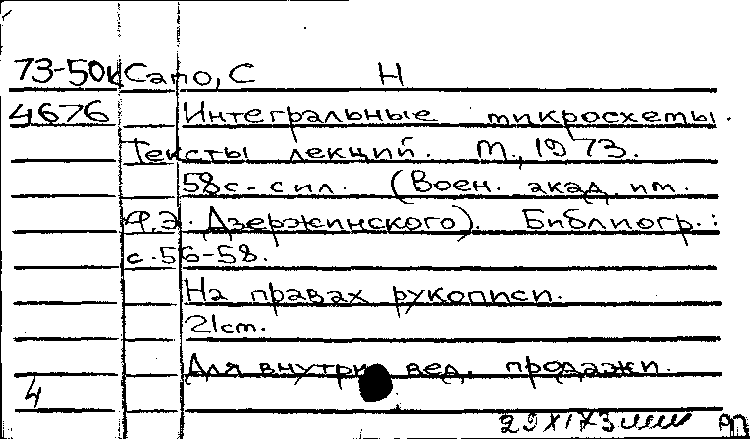 73-50к Сапо, С Н
4676 Интегральные микросхемы.
Тексты лекций. М., 1973.
58с. с ил. (Воен. акад. им.
Ф.Э. Дзержинского). Библиогр.:
с. 56-58.
На правах рукописи.
21cm.
Для внутри вед. продажи.
4